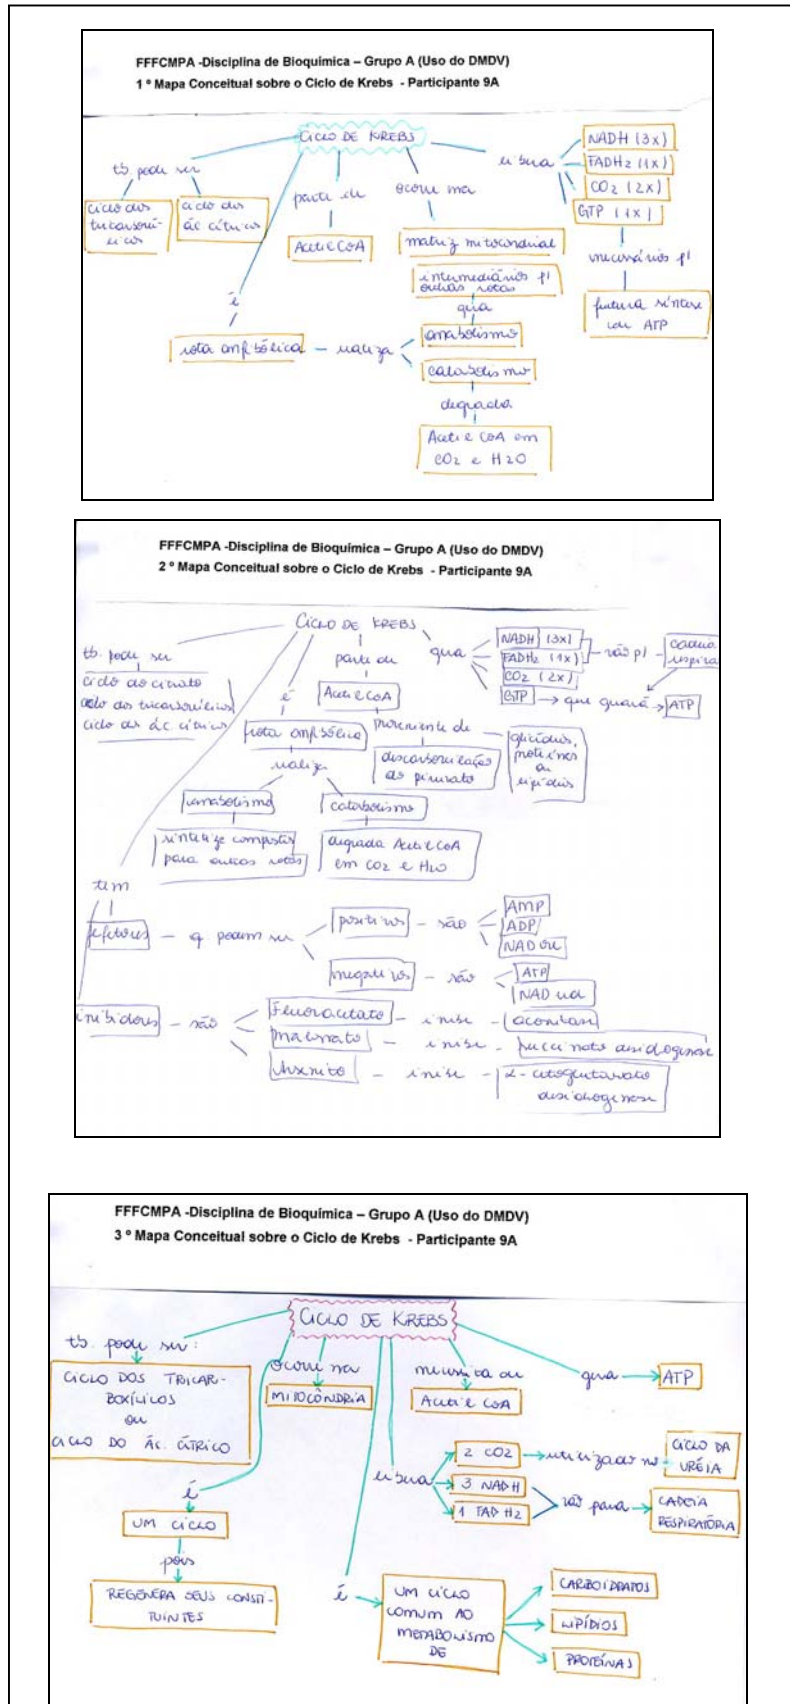 FFFCMPA -Disciplina de Bioquímica – Grupo A (Uso do DMDV)
1 º Mapa Conceitual sobre o Ciclo de Krebs - Participante 9A
CICLO DE KREBS
tb. pode ser
ciclo dos
ciclo do
ác cítrico
parte de
Acetil CoA
ocorre na
matriz mitocondrial
libera
NADH (3x)
FADH2 (1x)
CO2 (2x)
GTP (1x)
necessários p/
futura síntese
de ATP
é
rota anfibólica
realiza
intermediários p/
outras rotas
gera
anabolismo
catabolismo
degrada
Acetil CoA em
CO2 e H2O
FFFCMPA -Disciplina de Bioquímica – Grupo A (Uso do DMDV)
2 º Mapa Conceitual sobre o Ciclo de Krebs - Participante 9A
CICLO DE KREBS
tb. pode ser
ciclo do citrato
ciclo do ác. cítrico
é
rota anfibólica
realiza
anabolismo
sintetize compostos
para outras rotas
catabolismo
degrada Acetil CoA
em CO2 e H2O
parte de
Acetil CoA
proveniente de
descarboxilação
do piruvato
ou
gera
NADH (3x)
FADH2 (1x)
CO2 (2x)
GTP
vão p/
cadeia
respira
que gerará
ATP
tem
efetores
q podem ser
positivos
são
AMP
ADP
negativos
são
ATP
inibidores
são
Fluoracetato
inibe
aconitase
Malonato
inibe
Arsenito
inibe
FFFCMPA -Disciplina de Bioquímica – Grupo A (Uso do DMDV)
3 º Mapa Conceitual sobre o Ciclo de Krebs - Participante 9A
CICLO DE KREBS
tb. pode ser:
CICLO DOS TRICAR-
BOXÍLICOS
ou
CICLO DO ÁC. CÍTRICO
ocorre na
MITOCÔNDRIA
necessita de
Acetil CoA
gera
ATP
libera
2 CO2
3 NADH
1 FADH2
utilizado no
CICLO DA
URÉIA
vão para
CADEIA
RESPIRATÓRIA
é
UM CICLO
pois
REGENERA SEUS CONSTI-
TUINTES
é
UM CICLO
COMUM AO
METABOLISMO
DE
CARBOIDRATOS
LIPÍDIOS
PROTEÍNAS